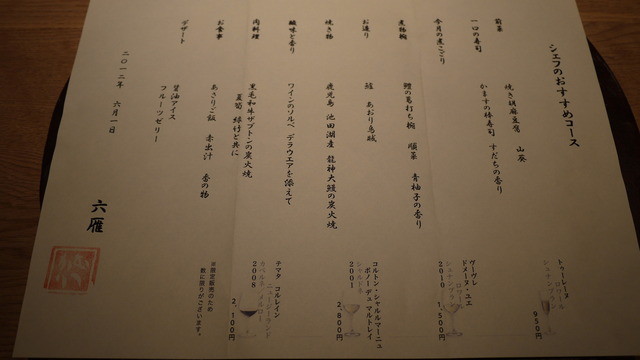 シェフのおすすめコース
前菜
焼き胡麻豆腐 山葵
一口の寿司
かますの棒寿司 すだちの香り
今月の煮こごり
煮物椀
鱧の葛打ち椀 順菜 青柚子の香り
お造り
鯵 あおり烏賊
焼き物
鹿児島 池田湖産 龍神大鰻の炭火焼
酸味と香り
ワインのソルベ、デラウエアを添えて
肉料理
黒毛和味ザブトンの炭火焼
夏筍 緑竹と共に
お食事
あさりご飯 赤出汁 香の物
デザート
醤油アイス
フルーツゼリー
二〇一二年 六月一日
六雁
トゥーレーヌ
ロワール
950円
ヴーヴレ
ドメーヌ・ユエ
ロワール
シュナン・ブラン
2010
1,500円
コルトン・シャルルマーニュ
ボノー・デュ・マルトレイ
シャルドネ
2001
2,800円
テマタ コルレイン
ニュージーランド
カベルネ・メルロー
2008
2,100円
※限定販売のため
数に限りがございます。